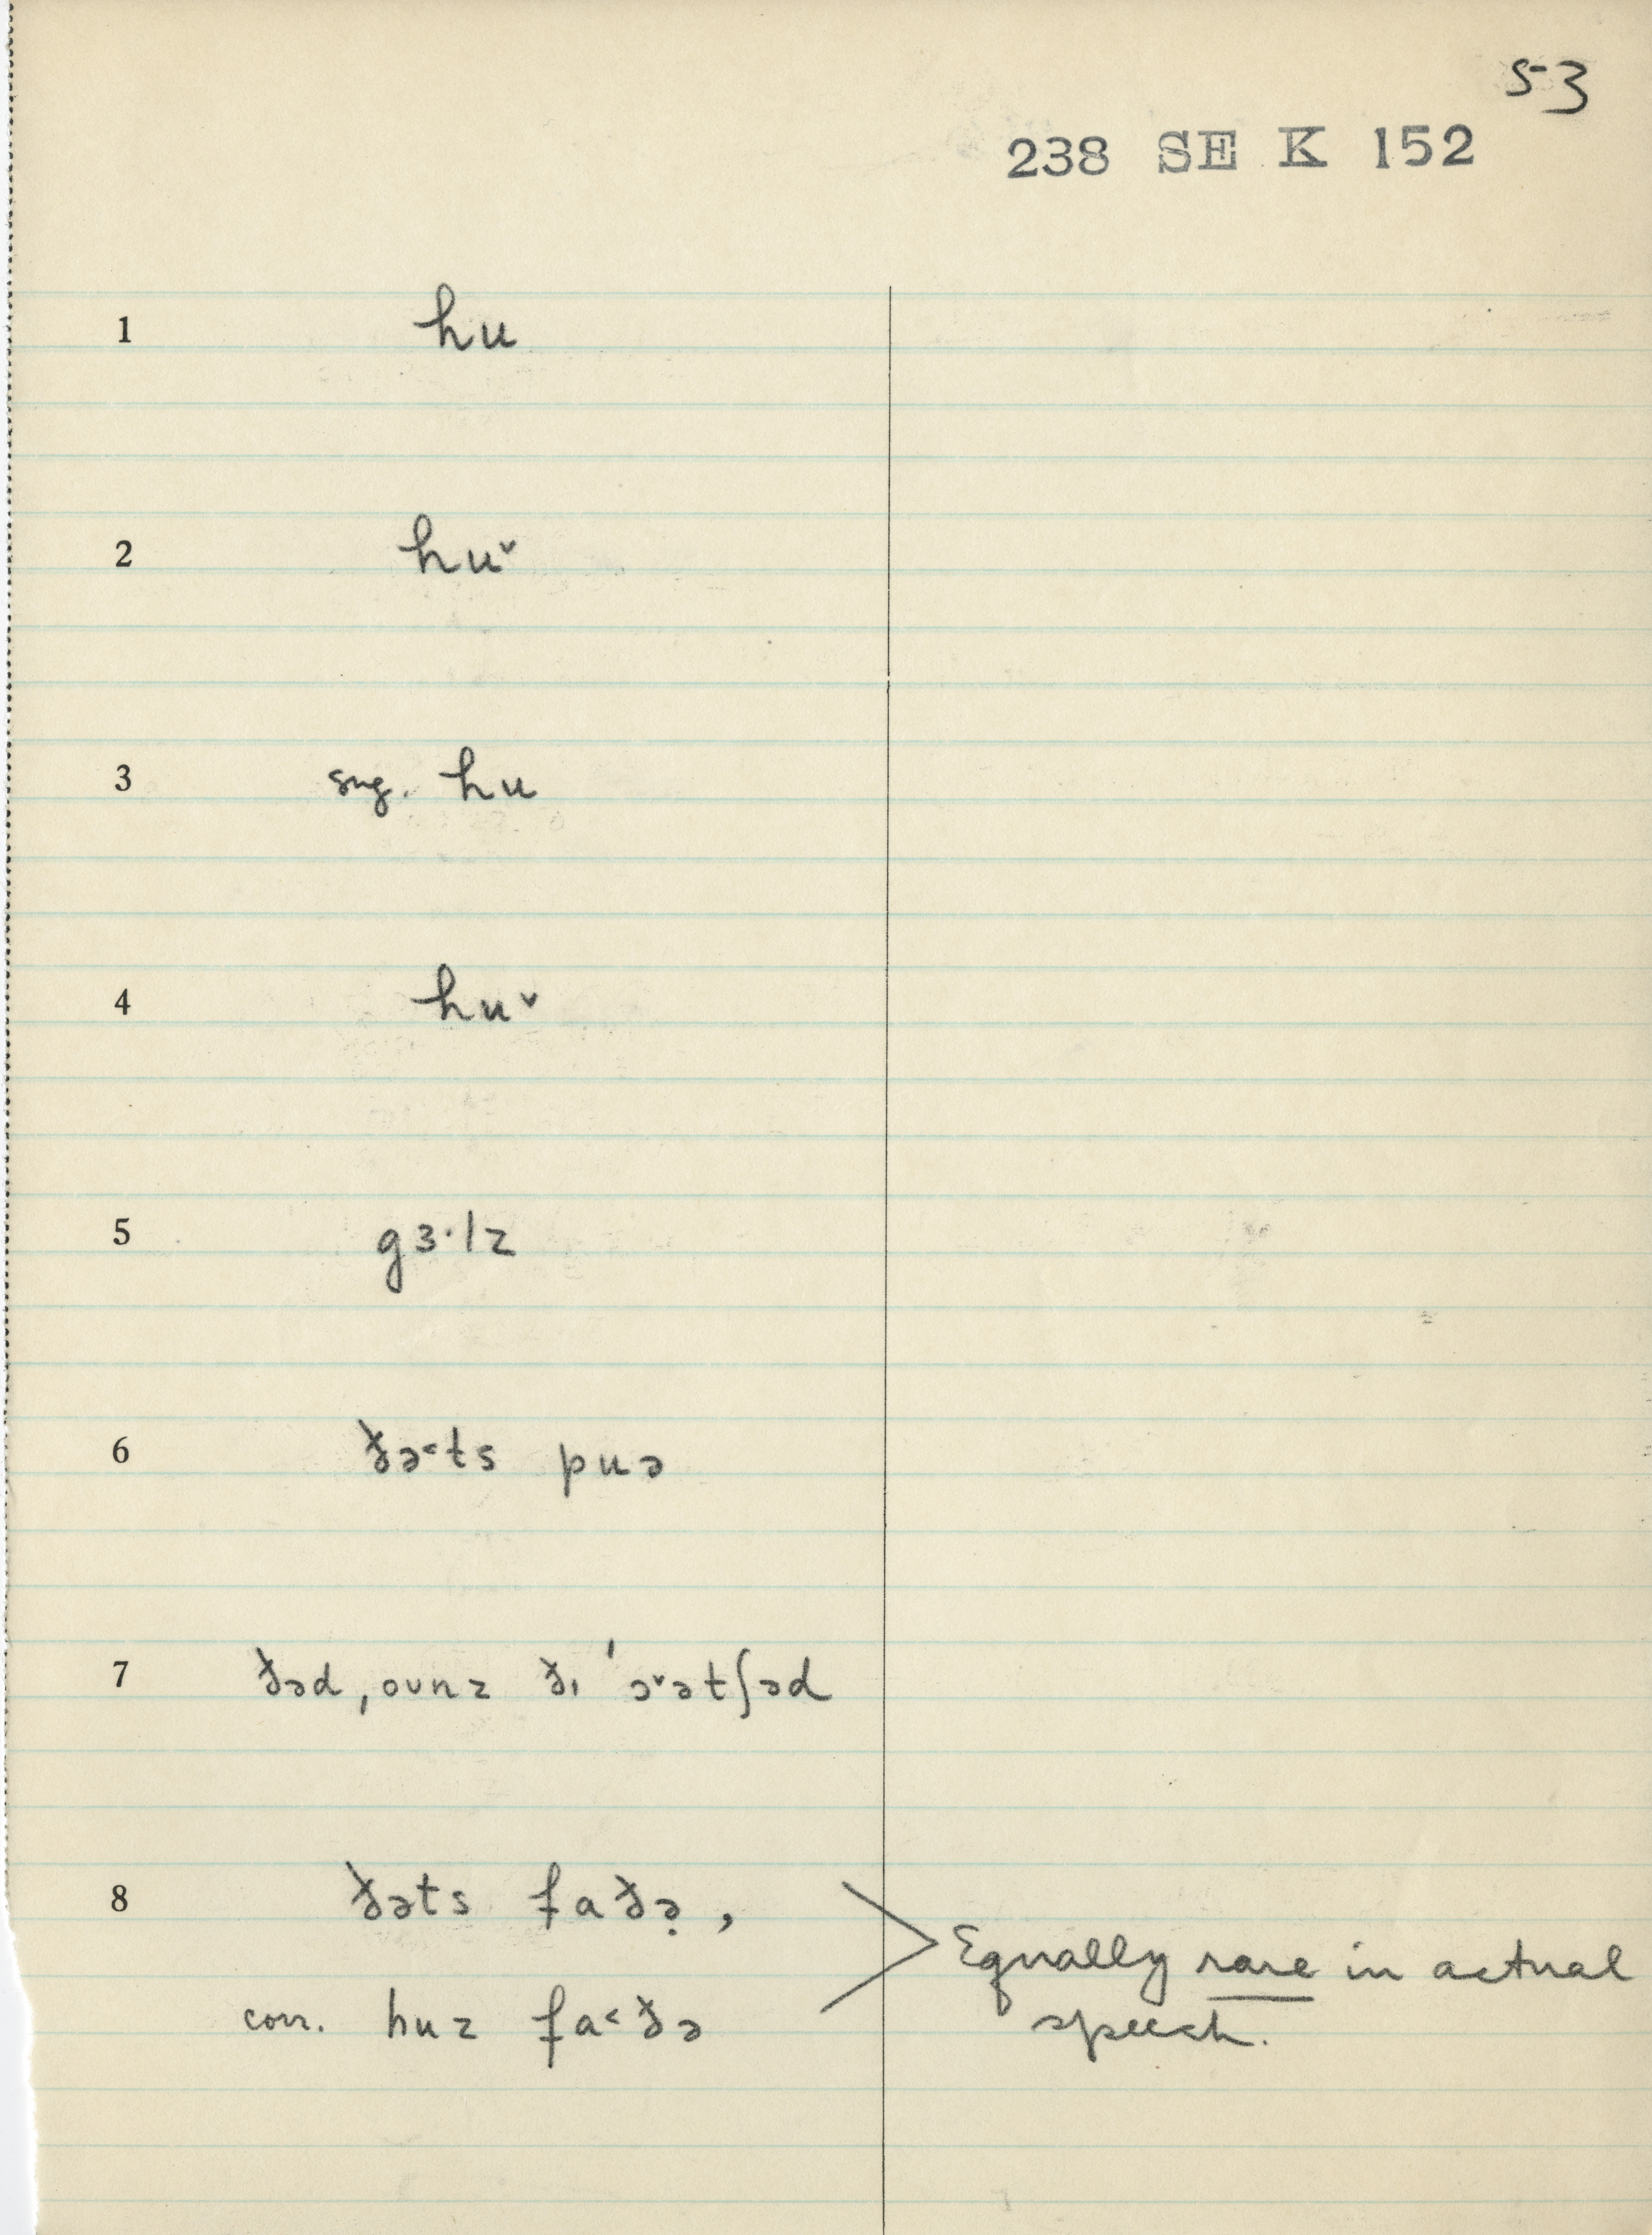 53
238 SE K 152
1 hu
2 hu˅
3 sug. hu
4 hu˅
5 gɜ·lz
6 ðə˂ts puə
7 ðəd, oʊnz ðɪ ˈɔ˅ətʃəd
8 ðəts faðə̣,
corr. huz fa˂ðə
Equally rare in actual
speech.